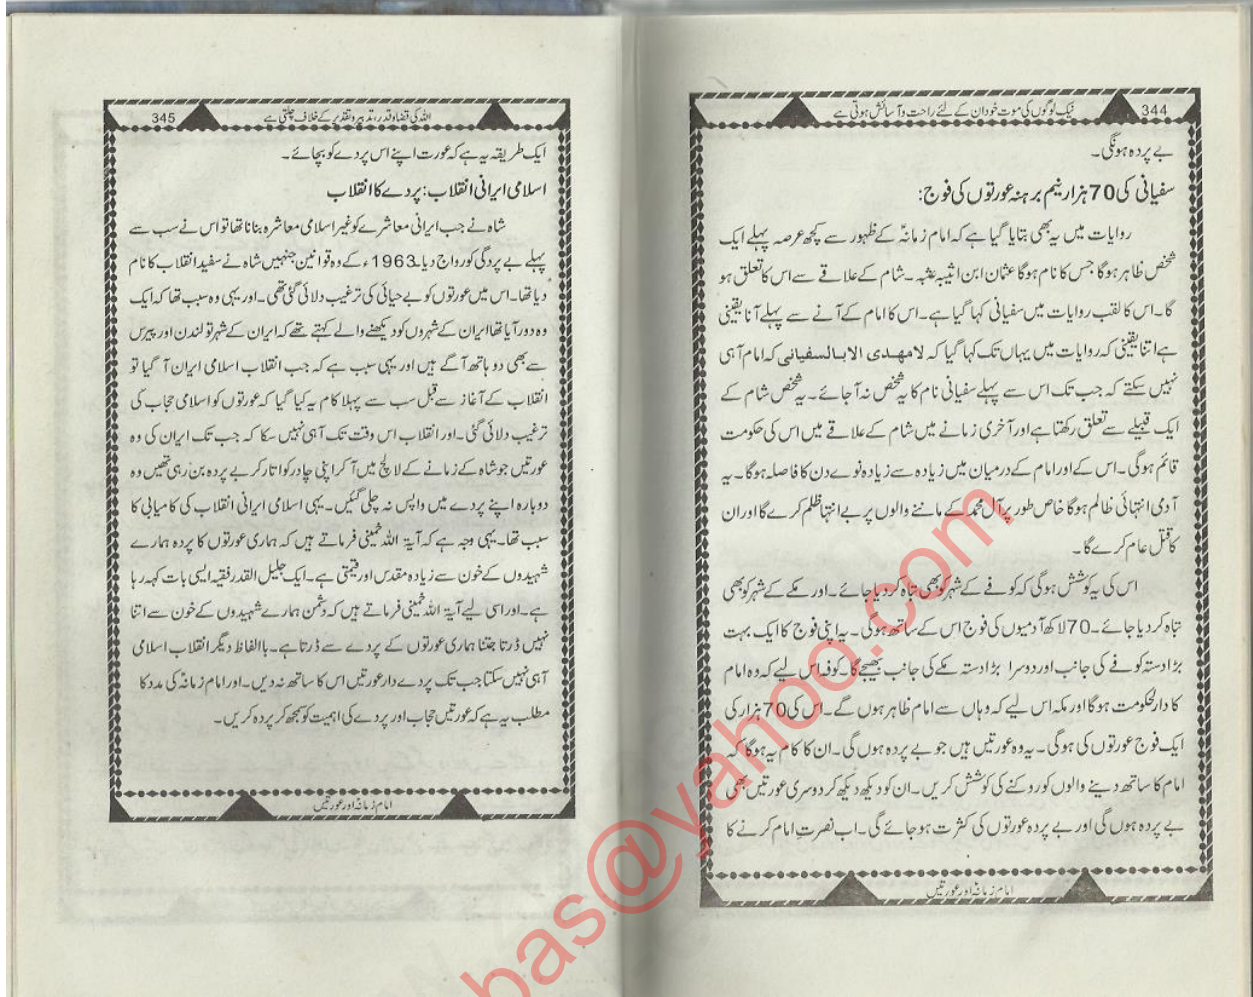 344 نیک لوگوں کی موت خود ان کے لئے راحت و آسائش ہوتی ہے
بے پردہ ہونگی۔
سفیانی کی 70 ہزار نیم برہنہ عورتوں کی فوج:
روایات میں یہ بھی بتایا گیا ہے کہ امام زمانہؑ کے ظہور سے کچھ عرصہ پہلے ایک
شخص ظاہر ہوگا جس کا نام ہوگا عثمان ابن عتبہ۔ شام کے علاقے سے اس کا تعلق ہو
گا۔ اس کا لقب روایات میں سفیانی کہا گیا ہے۔ اس کا امام کے آنے سے پہلے آنا یقینی
ہے اتنا یقینی کہ روایات میں یہاں تک کہا گیا کہ لا مهدی الا بالسفیانی کہ امام آہی
نہیں سکتے کہ جب تک اس سے پہلے سفیانی نام کا یہ شخص نہ آجائے۔ یہ شخص شام کے
ایک قبیلے سے تعلق رکھتا ہے اور آخری زمانے میں شام کے علاقے میں اس کی حکومت
قائم ہوگی۔ اس کے اور امام کے درمیان میں زیادہ سے زیادہ نوے دن کا فاصلہ ہوگا۔ یہ
آدمی انتہائی ظالم ہوگا خاص طور پر آل محمدؐ کے ماننے والوں پر بے انتہا ظلم کرے گا اور ان
کا قتل عام کرے گا۔
اس کی یہ کوشش ہوگی کہ کوفے کے شہر کو بھی تباہ کر دیا جائے۔ اور مکے کے شہر کو بھی
تباہ کر دیا جائے۔ 70 لاکھ آدمیوں کی فوج اس کے ساتھ ہوگی۔ یہ اپنی فوج کا ایک بہت
بڑا دستہ کوفے کی جانب اور دوسرا بڑا دستہ مکے کی جانب بھیجے گا۔ کوفہ اس لیے کہ وہ امام
کا دارالحکومت ہوگا اور مکہ اس لیے کہ وہاں سے امام ظاہر ہوں گے۔ اس کی 70 ہزار کی
ایک فوج عورتوں کی ہوگی۔ یہ وہ عورتیں ہیں جو بے پردہ ہوں گی۔ ان کا کام یہ ہوگا کہ
امام کا ساتھ دینے والوں کو روکنے کی کوشش کریں۔ ان کو دیکھ دیکھ کر دوسری عورتیں بھی
بے پردہ ہوں گی اور بے پردہ عورتوں کی کثرت ہو جائے گی۔ اب نصرتِ امام کرنے کا
امام زمانہؑ اور عورتیں
345 اللہ کی قضا و قدر، تدبیر و تقدیر کے خلاف چلتی ہے
ایک طریقہ یہ ہے کہ عورت اپنے اس پردے کو بچائے۔
اسلامی ایرانی انقلاب: پردے کا انقلاب
شاہ نے جب ایرانی معاشرے کو غیر اسلامی معاشرہ بنانا تھا تو اس نے سب سے
پہلے بے پردگی کو رواج دیا۔ 1963ء کے وہ قوانین جنہیں شاہ نے سفید انقلاب کا نام
دیا تھا۔ اس میں عورتوں کو بے حیائی کی ترغیب دلائی گئی تھی۔ اور یہی وہ سبب تھا کہ ایک
وہ دور آیا تھا ایران کے شہروں کو دیکھنے والے کہتے تھے کہ ایران کے شہر تو لندن اور پیرس
سے بھی دو ہاتھ آگے ہیں اور یہی سبب ہے کہ جب انقلاب اسلامی ایران آ گیا تو
انقلاب کے آغاز سے قبل سب سے پہلا کام یہ کیا گیا کہ عورتوں کو اسلامی حجاب کی
ترغیب دلائی گئی۔ اور انقلاب اس وقت تک آہی نہیں سکا کہ جب تک ایران کی وہ
عورتیں جو شاہ کے زمانے کے لالچ میں آکر اپنی چادر کو اتار کر بے پردہ بن رہی تھیں وہ
دوبارہ اپنے پردے میں واپس نہ چلی گئیں۔ یہی اسلامی ایرانی انقلاب کی کامیابی کا
سبب تھا۔ یہی وجہ ہے کہ آیۃ اللہ خمینی فرماتے ہیں کہ ہماری عورتوں کا پردہ ہمارے
شہیدوں کے خون سے زیادہ مقدس اور قیمتی ہے۔ ایک جلیل القدر فقیہ ایسی بات کہہ رہا
ہے۔ اور اسی لیے آیۃ اللہ خمینی فرماتے ہیں کہ دشمن ہمارے شہیدوں کے خون سے اتنا
نہیں ڈرتا جتنا ہماری عورتوں کے پردے سے ڈرتا ہے۔ باالفاظ دیگر انقلاب اسلامی
آہی نہیں سکتا جب تک پردے دار عورتیں اس کا ساتھ نہ دیں۔ اور امام زمانہؑ کی مدد کا
مطلب یہ ہے کہ عورتیں حجاب اور پردے کی اہمیت کو سمجھ کر پردہ کریں۔
امام زمانہؑ اور عورتیں
bas@yahoo.com